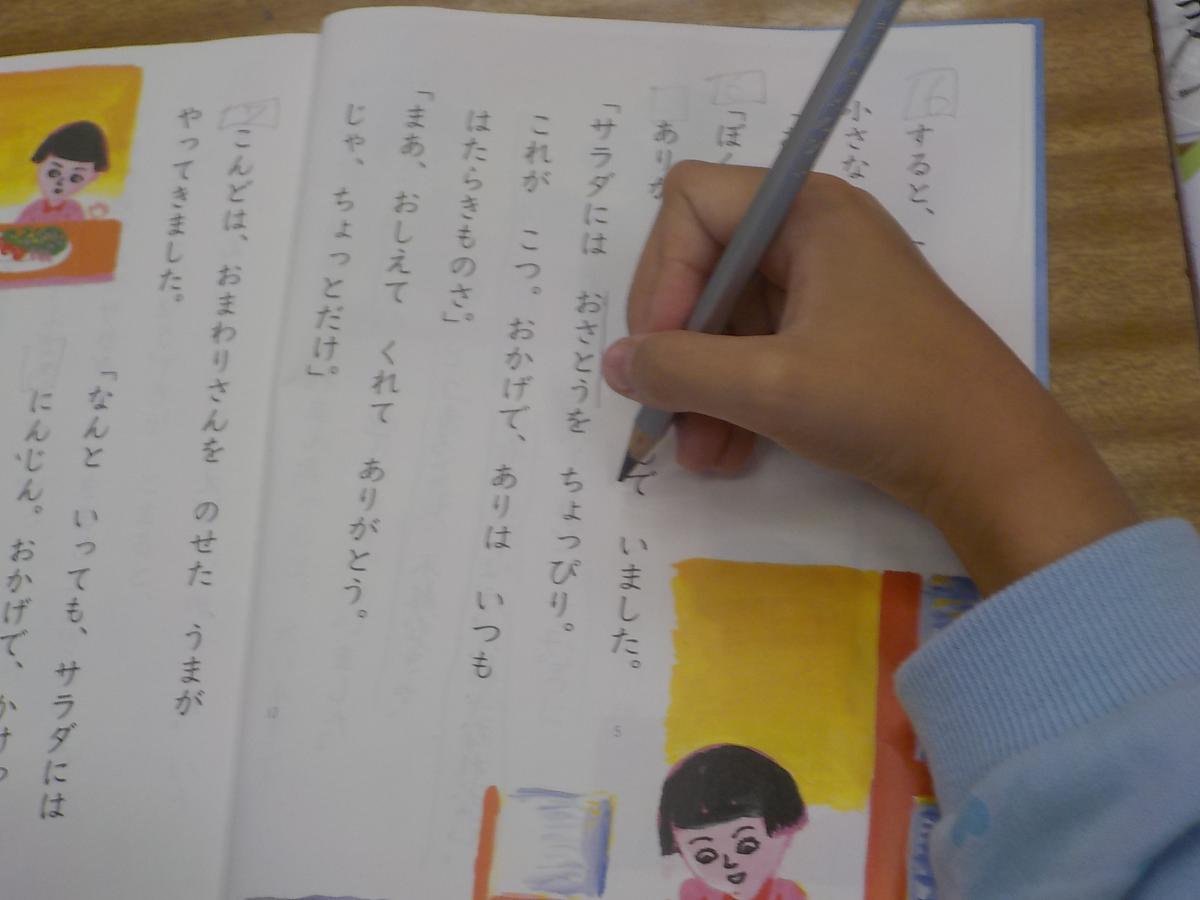 16
すると、
小さな
「ぼく
あり
で いました。
「サラダには おさとうを ちょっぴり。
これが こつ。おかげで、ありは いつも
はたらきものさ。」
「まあ、おしえて くれて ありがとう。
じゃ、ちょっとだけ。」
こんどは、おまわりさんを のせた うまが
やってきました。
「なんと いっても、サラダには
にんじん。おかげで、かけっ
5
10